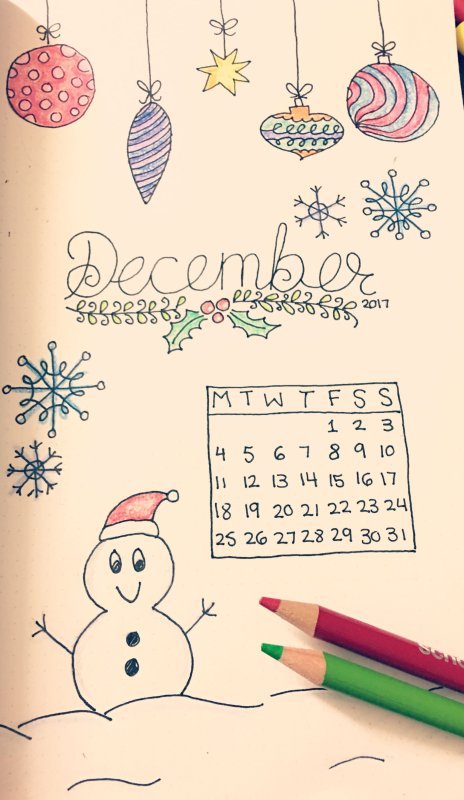 December
2017
M T W T F S S
1 2 3
4 5 6 7 8 9 10
11 12 13 14 15 16 17
18 19 20 21 22 23 24
25 26 27 28 29 30 31